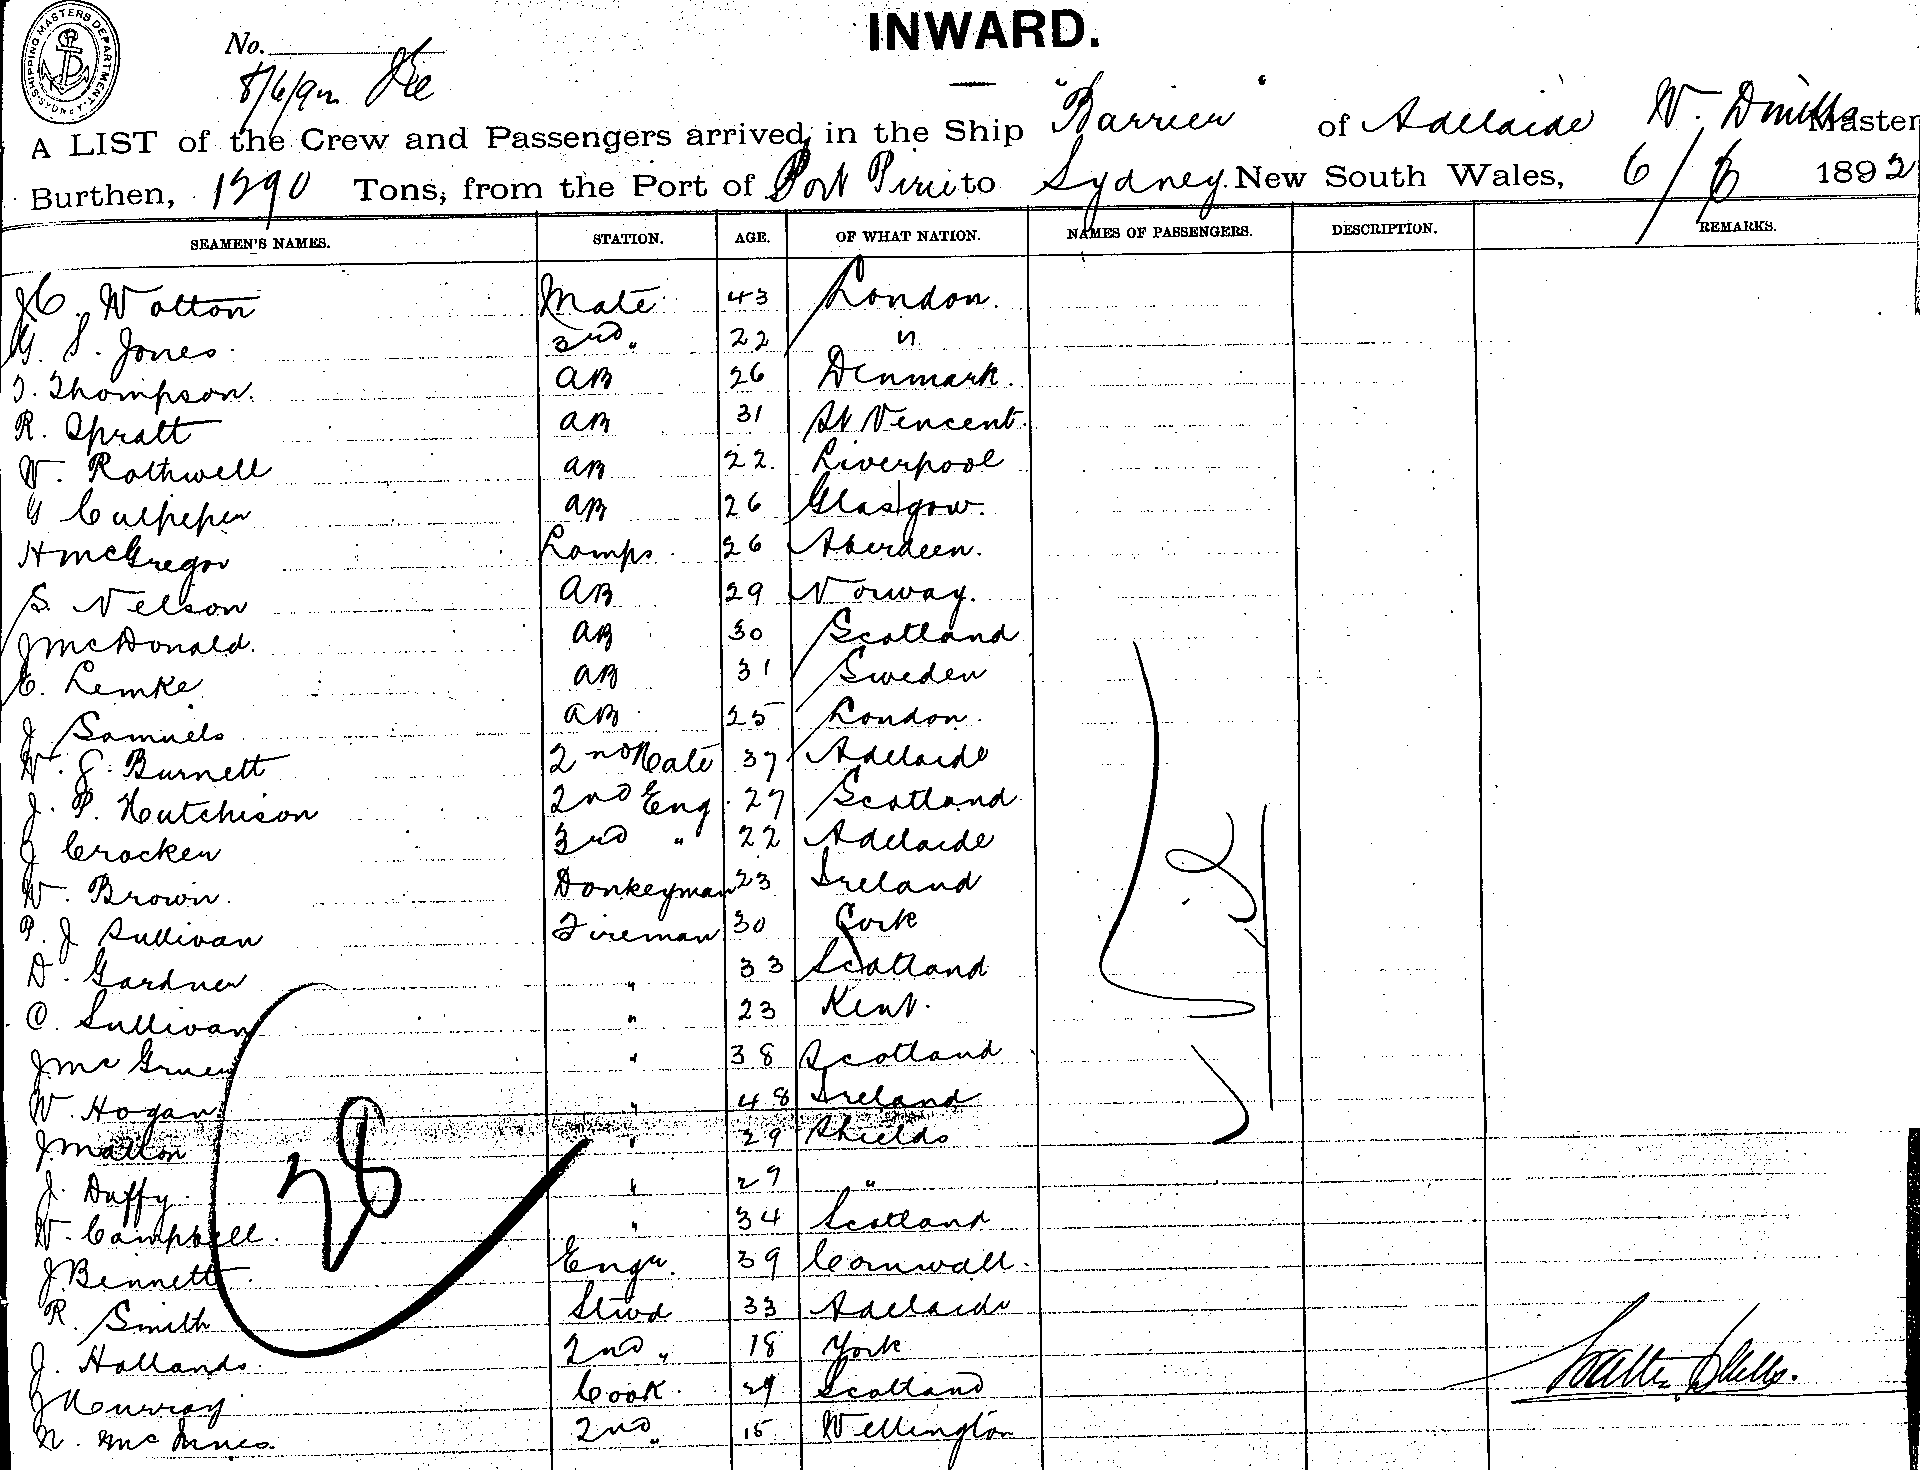 INWARD.
SHIPPING MASTERS DEPARTMENT. SYDNEY
No.
8/6/92
A LIST of the Crew and Passengers arrived, in the Ship "Barrier" of Adelaide W. Master
Burthen, 1290 Tons, from the Port of Port Pirie to Sydney. New South Wales, 6/6 1892
SEAMEN'S NAMES. STATION. AGE. OF WHAT NATION. NAMES OF PASSENGERS. DESCRIPTION. REMARKS.
Walton Mate 43 London.
S. Jones. 3rd " 22 "
T. Thompson. AB 26 Denmark.
R. Spratt AB 31 St Vencent.
W. Rothwell AB 22. Liverpool
G Culpeper AB 26 Glasgow.
H McGregor Lamps. 26 Aberdeen.
S. Nelson AB 29 Norway.
J McDonald. AB 30 Scotland
E. Lemke AB 31 Sweden
J Samuels AB 25 London.
W. G. Burnett 2nd Mate 37 Adelaide
J. P. Hutchison 2nd Eng. 27 Scotland
J Crocker 3rd " 22 Adelaide
W. Brown. Donkeyman 23 Ireland
P. J Sullivan Fireman 30 Cork
D. Gardner " 33 Scotland
C. Sullivan " 23 Kent.
J Mc Gruer " 38 Scotland
W. Hogan " 48 Ireland
J Mallon " 29 Shields
J. Duffy. " 27 "
W. Campbell. " 34 Scotland
J Bennett Engr. 39 Cornwall.
R. Smith Stwd 33 Adelaide
J. Hollands. 2nd " 18 York
J Murray Cook. 29 Scotland
N. McInnes. 2nd " 15 Wellington
28
Nil